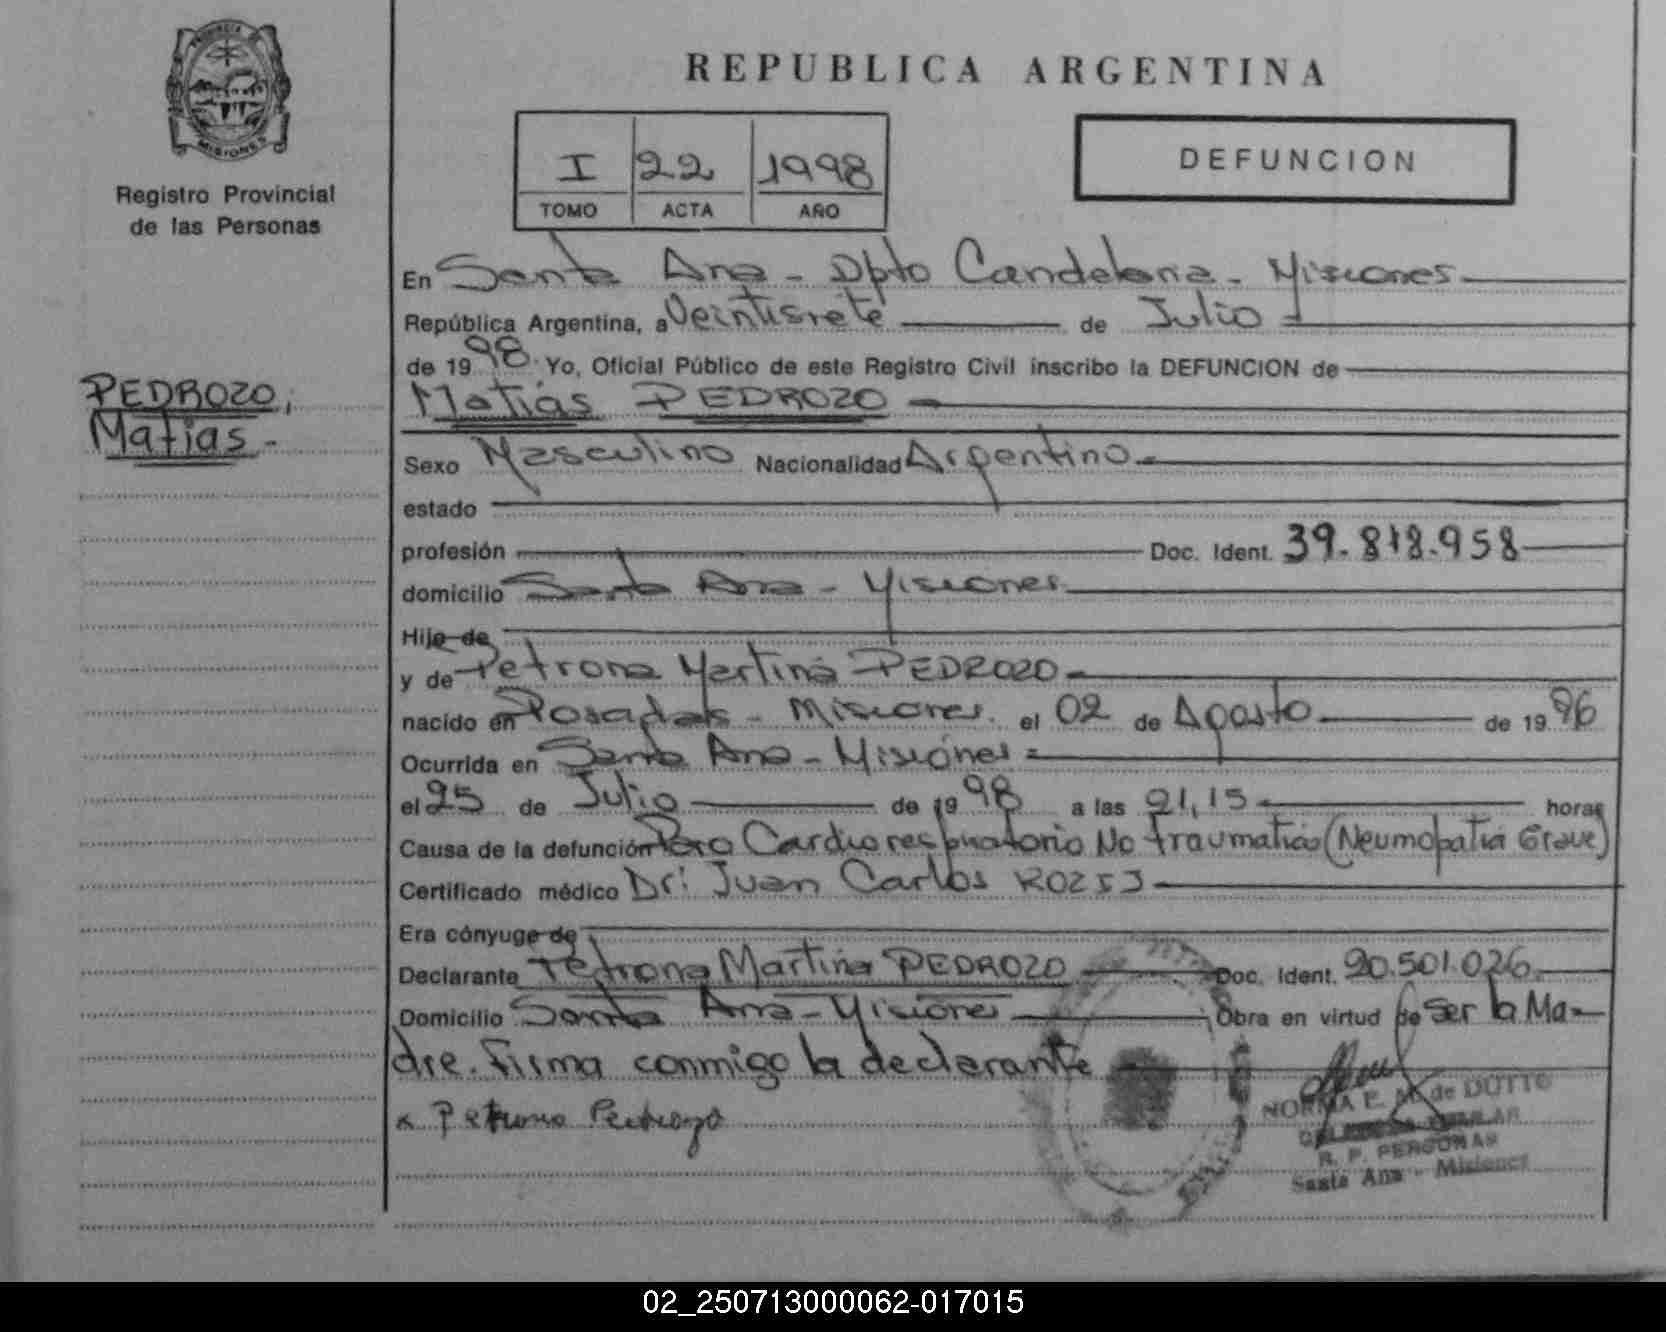 PROVINCIA DE
MISIONES
Registro Provincial
de las Personas
PEDROZO,
Matias.-
REPUBLICA ARGENTINA
I 22 1998
TOMO ACTA AÑO
DEFUNCION
En Santa Ana - Dpto Candelaria - Misiones
República Argentina, a Veintisiete de Julio
de 1998. Yo, Oficial Público de este Registro Civil inscribo la DEFUNCION de
Matias PEDROZO
Sexo Masculino Nacionalidad Argentino
estado
profesión Doc. Ident. 39.818.958
domicilio Santa Ana - Misiones
Hijo de
y de Petrona Martina PEDROZO
nacido en Posadas - Misiones. el 02 de Agosto de 1996
Ocurrida en Santa Ana - Misiones
el 25 de Julio de 1998 a las 21,15 horas
Causa de la defunción Paro Cardiorespiratorio No Traumatico (Neumopatia Grave)
Certificado médico Dr: Juan Carlos
Era cónyuge de
Declarante Petrona Martina PEDROZO Doc. Ident. 20.501.026.
Domicilio Santa Ana - Misiones Obra en virtud de ser la Ma-
dre. Firma conmigo la declarante
x Petrona Pedrozo
NORMA E. M. de DUTTO
R. P. PERSONAS
Santa Ana - Misiones
02_250713000062-017015